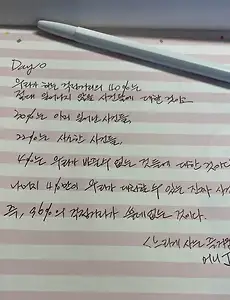 Day 0
우리가 하는 걱정거리의 40%는
절대 일어나지 않을 사건들에 대한 것이고
30%는 이미 일어난 사건들,
22%는 사소한 사건들,
4%는 우리가 바꿀 수 없는 것들에 대한 것이다
나머지 4%만이 우리가 대처할 수 있는 진짜 사건
즉, 96%의 걱정거리가 쓸데없는 것이다.
<느리게 사는 즐거움
어니 J